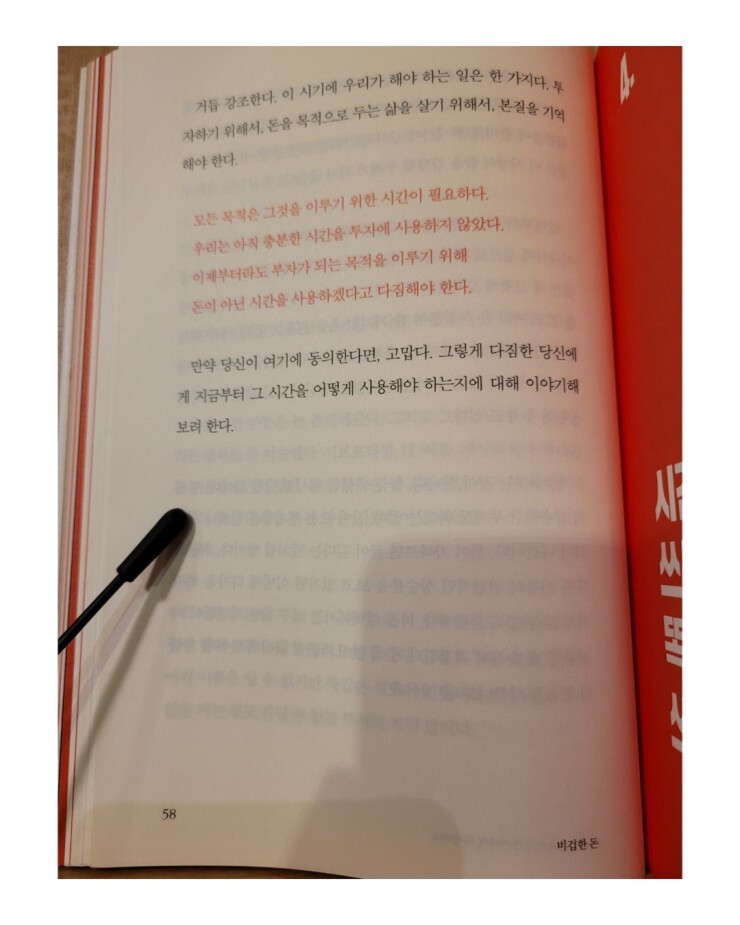 거듭 강조한다. 이 시기에 우리가 해야 하는 일은 한 가지다. 투
자하기 위해서, 돈을 목적으로 두는 삶을 살기 위해서, 본질을 기억
해야 한다.
모든 목적은 그것을 이루기 위한 시간이 필요하다.
우리는 아직 충분한 시간을 투자에 사용하지 않았다.
이제부터라도 부자가 되는 목적을 이루기 위해
돈이 아닌 시간을 사용하겠다고 다짐해야 한다.
만약 당신이 여기에 동의한다면, 고맙다. 그렇게 다짐한 당신에
게 지금부터 그 시간을 어떻게 사용해야 하는지에 대해 이야기해
보려 한다.
58
비겁한 돈
4